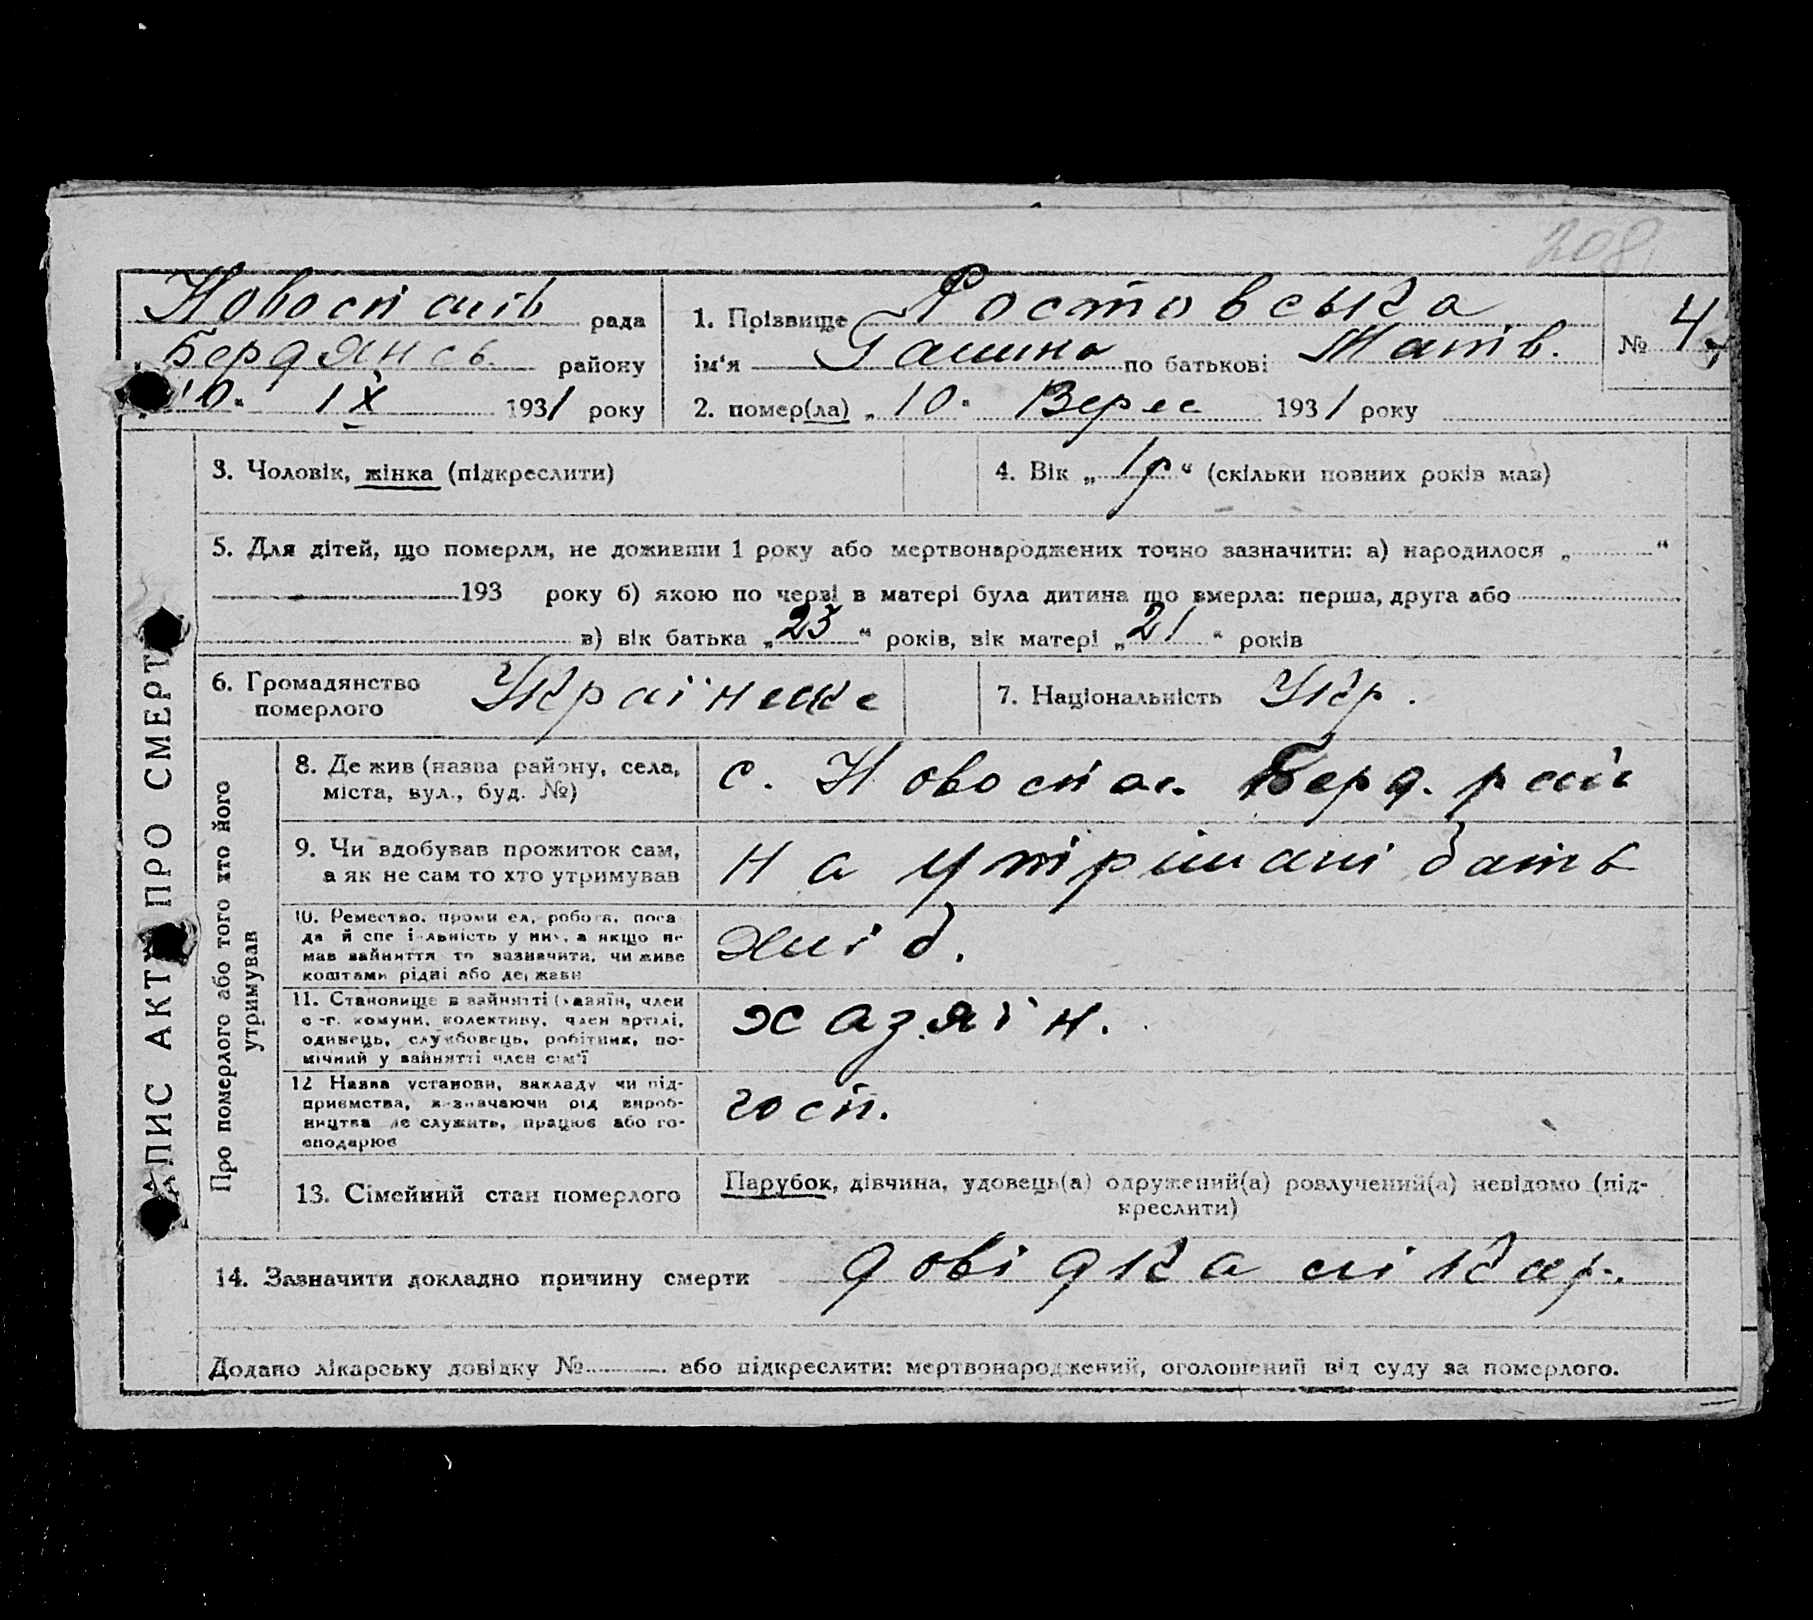 208
Новоспасів рада
Бердянсь. району
"10" IX 1931 року
1. Прізвище Ростовська
ім'я Галина по батькові Матв.
2. помер(ла) „10" Верес 1931 року
№ 4
ЗАПИС АКТУ ПРО СМЕРТЬ
3. Чоловік, жінка (підкреслити)
4. Вік „1р" (скільки повних років мав)
5. Для дітей, що померли, не доживши 1 року або мертвонароджених точно зазначити: а) народилося „ "
193 року б) якою по черзі в матері була дитина що вмерла: перша, друга або
в) вік батька „23" років, вік матері „21" років
6. Громадянство
померлого
Українське
7. Національність Укр.
Про померлого або того хто його
утримував
8. Де жив (назва району, села,
міста, вул., буд. №)
с. Новоспас. Берд. рай
9. Чи здобував прожиток сам,
а як не сам то хто утримував
на утрімані батьв
10. Ремество, промисел, робота, поса
да й спеціяльність у них, а якщо не
мав зайняття то зазначити, чи живе
коштами рідні або держави
хліб.
11. Становище в зайнятті (хазяїн, член
с.-г. комуни, колективу, член артілі,
одинець, службовець, робітник, по-
мічний у зайнятті член сім'ї
хазяїн.
12 Назва установи, закладу чи під-
приємства, визначаючи рід вироб-
ництва де служить, працює або го-
сподарює
госп.
13. Сімейний стан померлого
Парубок, дівчина, удовець(а) одружений(а) розлучений(а) невідомо (під-
креслити)
14. Зазначити докладно причину смерти довідка лікар.
Додано лікарську довідку № або підкреслити: мертвонароджений, оголошений від суду за померлого.